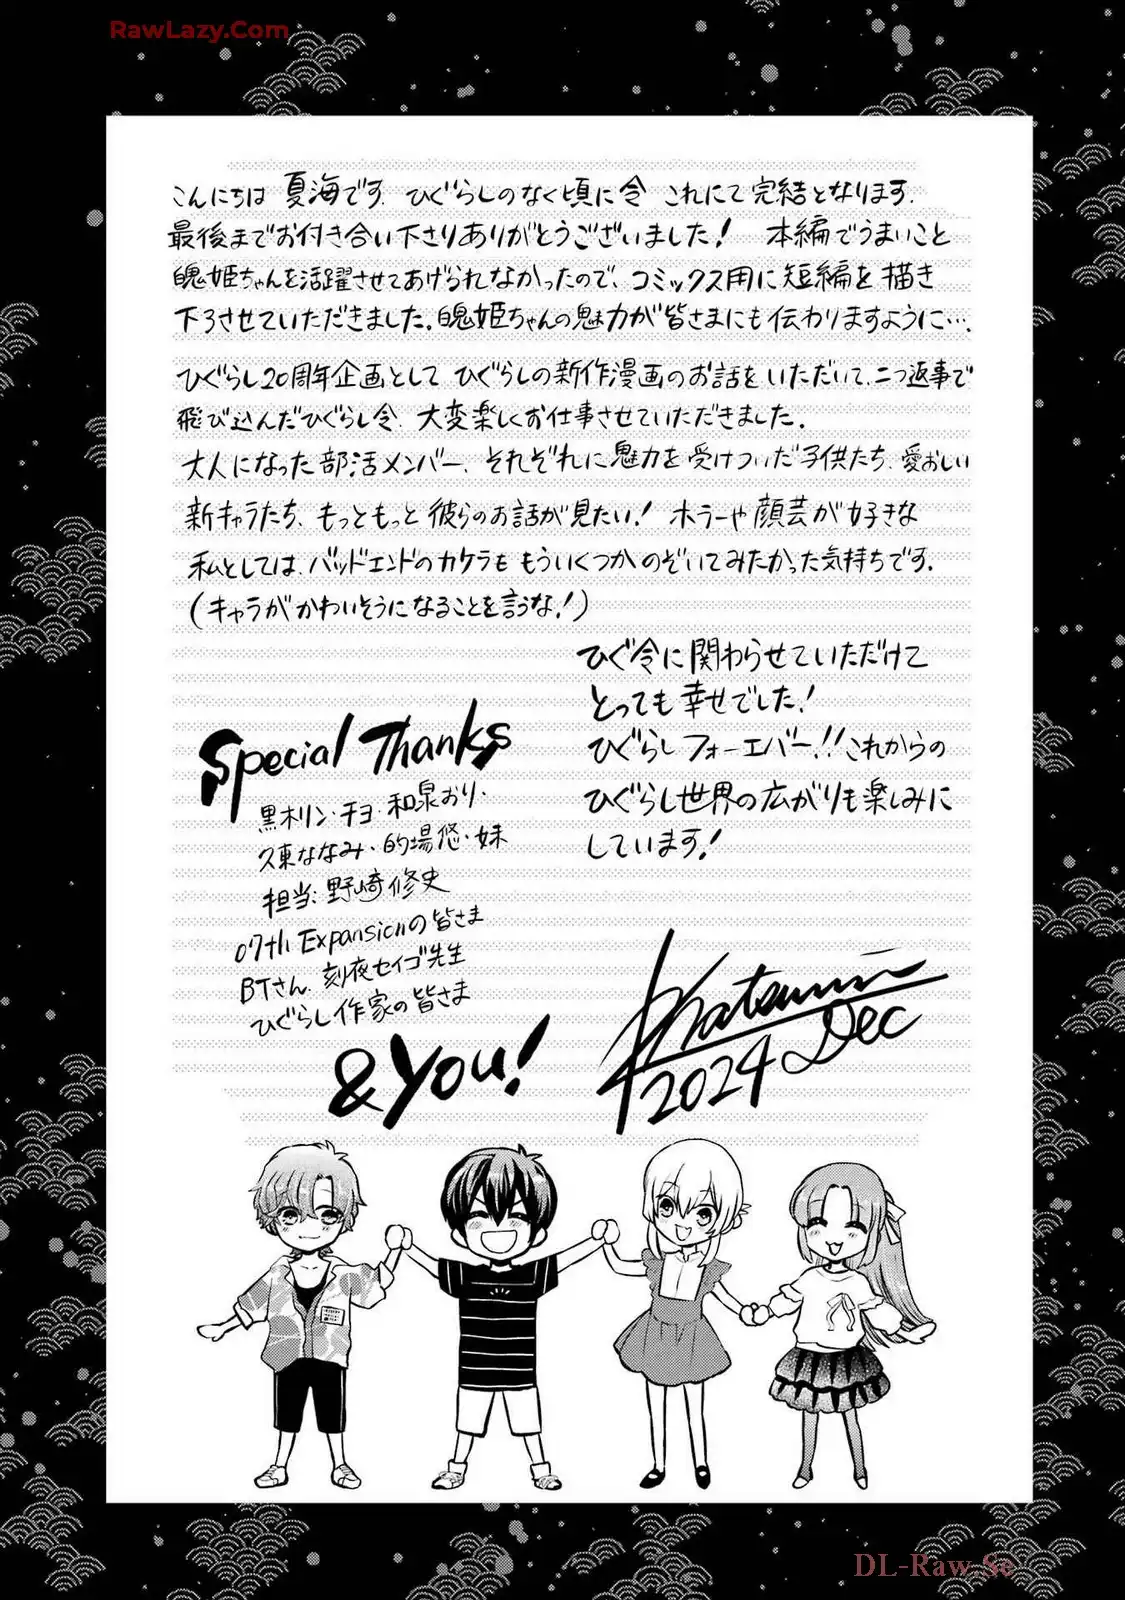 RawLazy.Com
こんにちは 夏海です。ひぐらしのなく頃に令 これにて完結となります。
最後までお付き合い下さりありがとうございました! 本編でうまいこと
魄姫ちゃんを活躍させてあげられなかったので、コミックス用に短編を描き
下ろさせていただきました。魄姫ちゃんの魅力が皆さまにも伝わりますように…。
ひぐらし20周年企画として ひぐらしの新作漫画のお話をいただいて、二つ返事で
飛び込んだひぐらし令、大変楽しくお仕事させていただきました。
大人になった部活メンバー、それぞれに魅力を受けついだ子供たち、愛おしい
新キャラたち、もっともっと彼らのお話が見たい! ホラーや顔芸が好きな
私としては、バッドエンドのカケラも もういくつか のぞいてみたかった気持ちです。
(キャラがかわいそうになることを言うな!)
ひぐ令に関わらせていただけて
とっても幸せでした!
ひぐらしフォーエバー!!これからの
ひぐらし世界の広がりも楽しみに
しています!
Special Thanks
黒木リン・チヨ・和泉おり・
久東ななみ・的場悠・妹
担当:野崎修史
07th Expansionの皆さま
BTさん、刻夜セイゴ先生
ひぐらし作家の皆さま
&YOU!
Natsumi
2024 Dec
DL-Raw.Se